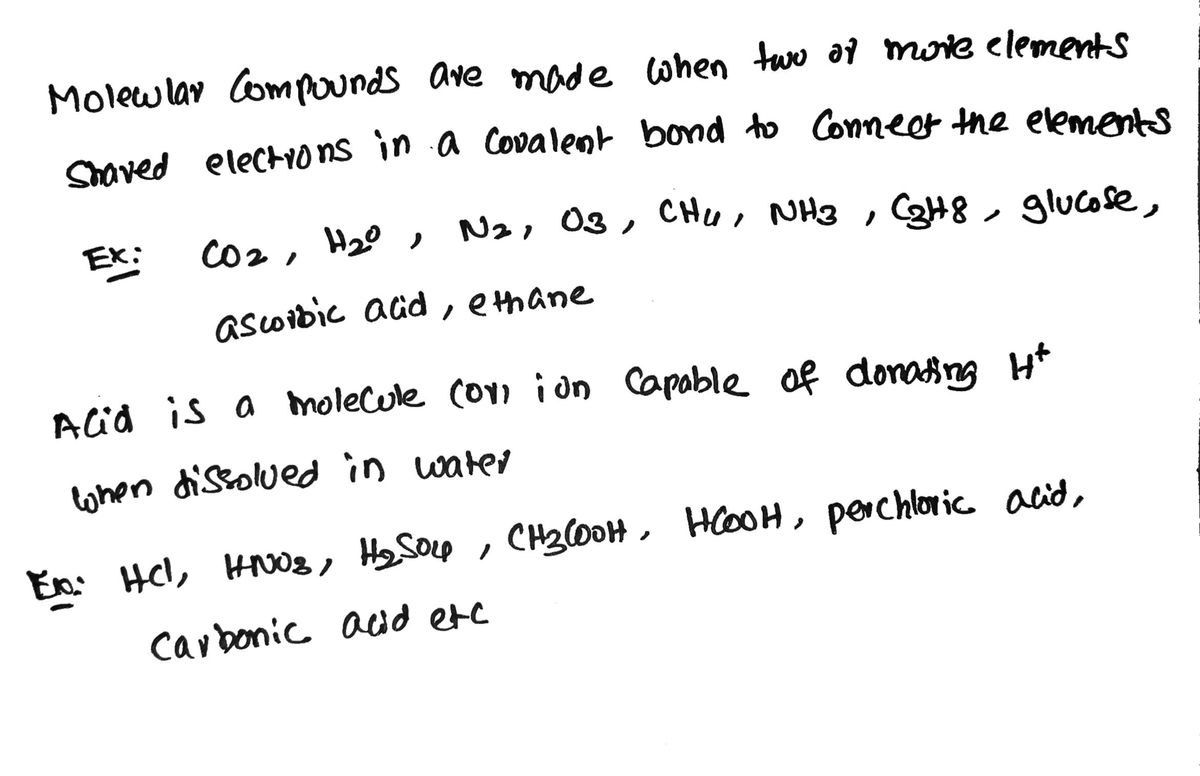 Molecular Compounds are made when two or more elements
Shared electrons in a Covalent bond to Connect the elements
Ex: CO2, H2O, N2, O3, CH4, NH3, C3H8, glucose,
ascorbic acid, ethane
Acid is a molecule (or) ion Capable of donating H+
When dissolved in water
Ex: HCl, HNO3, H2SO4, CH3COOH, HCOOH, perchloric acid,
Carbonic acid etc